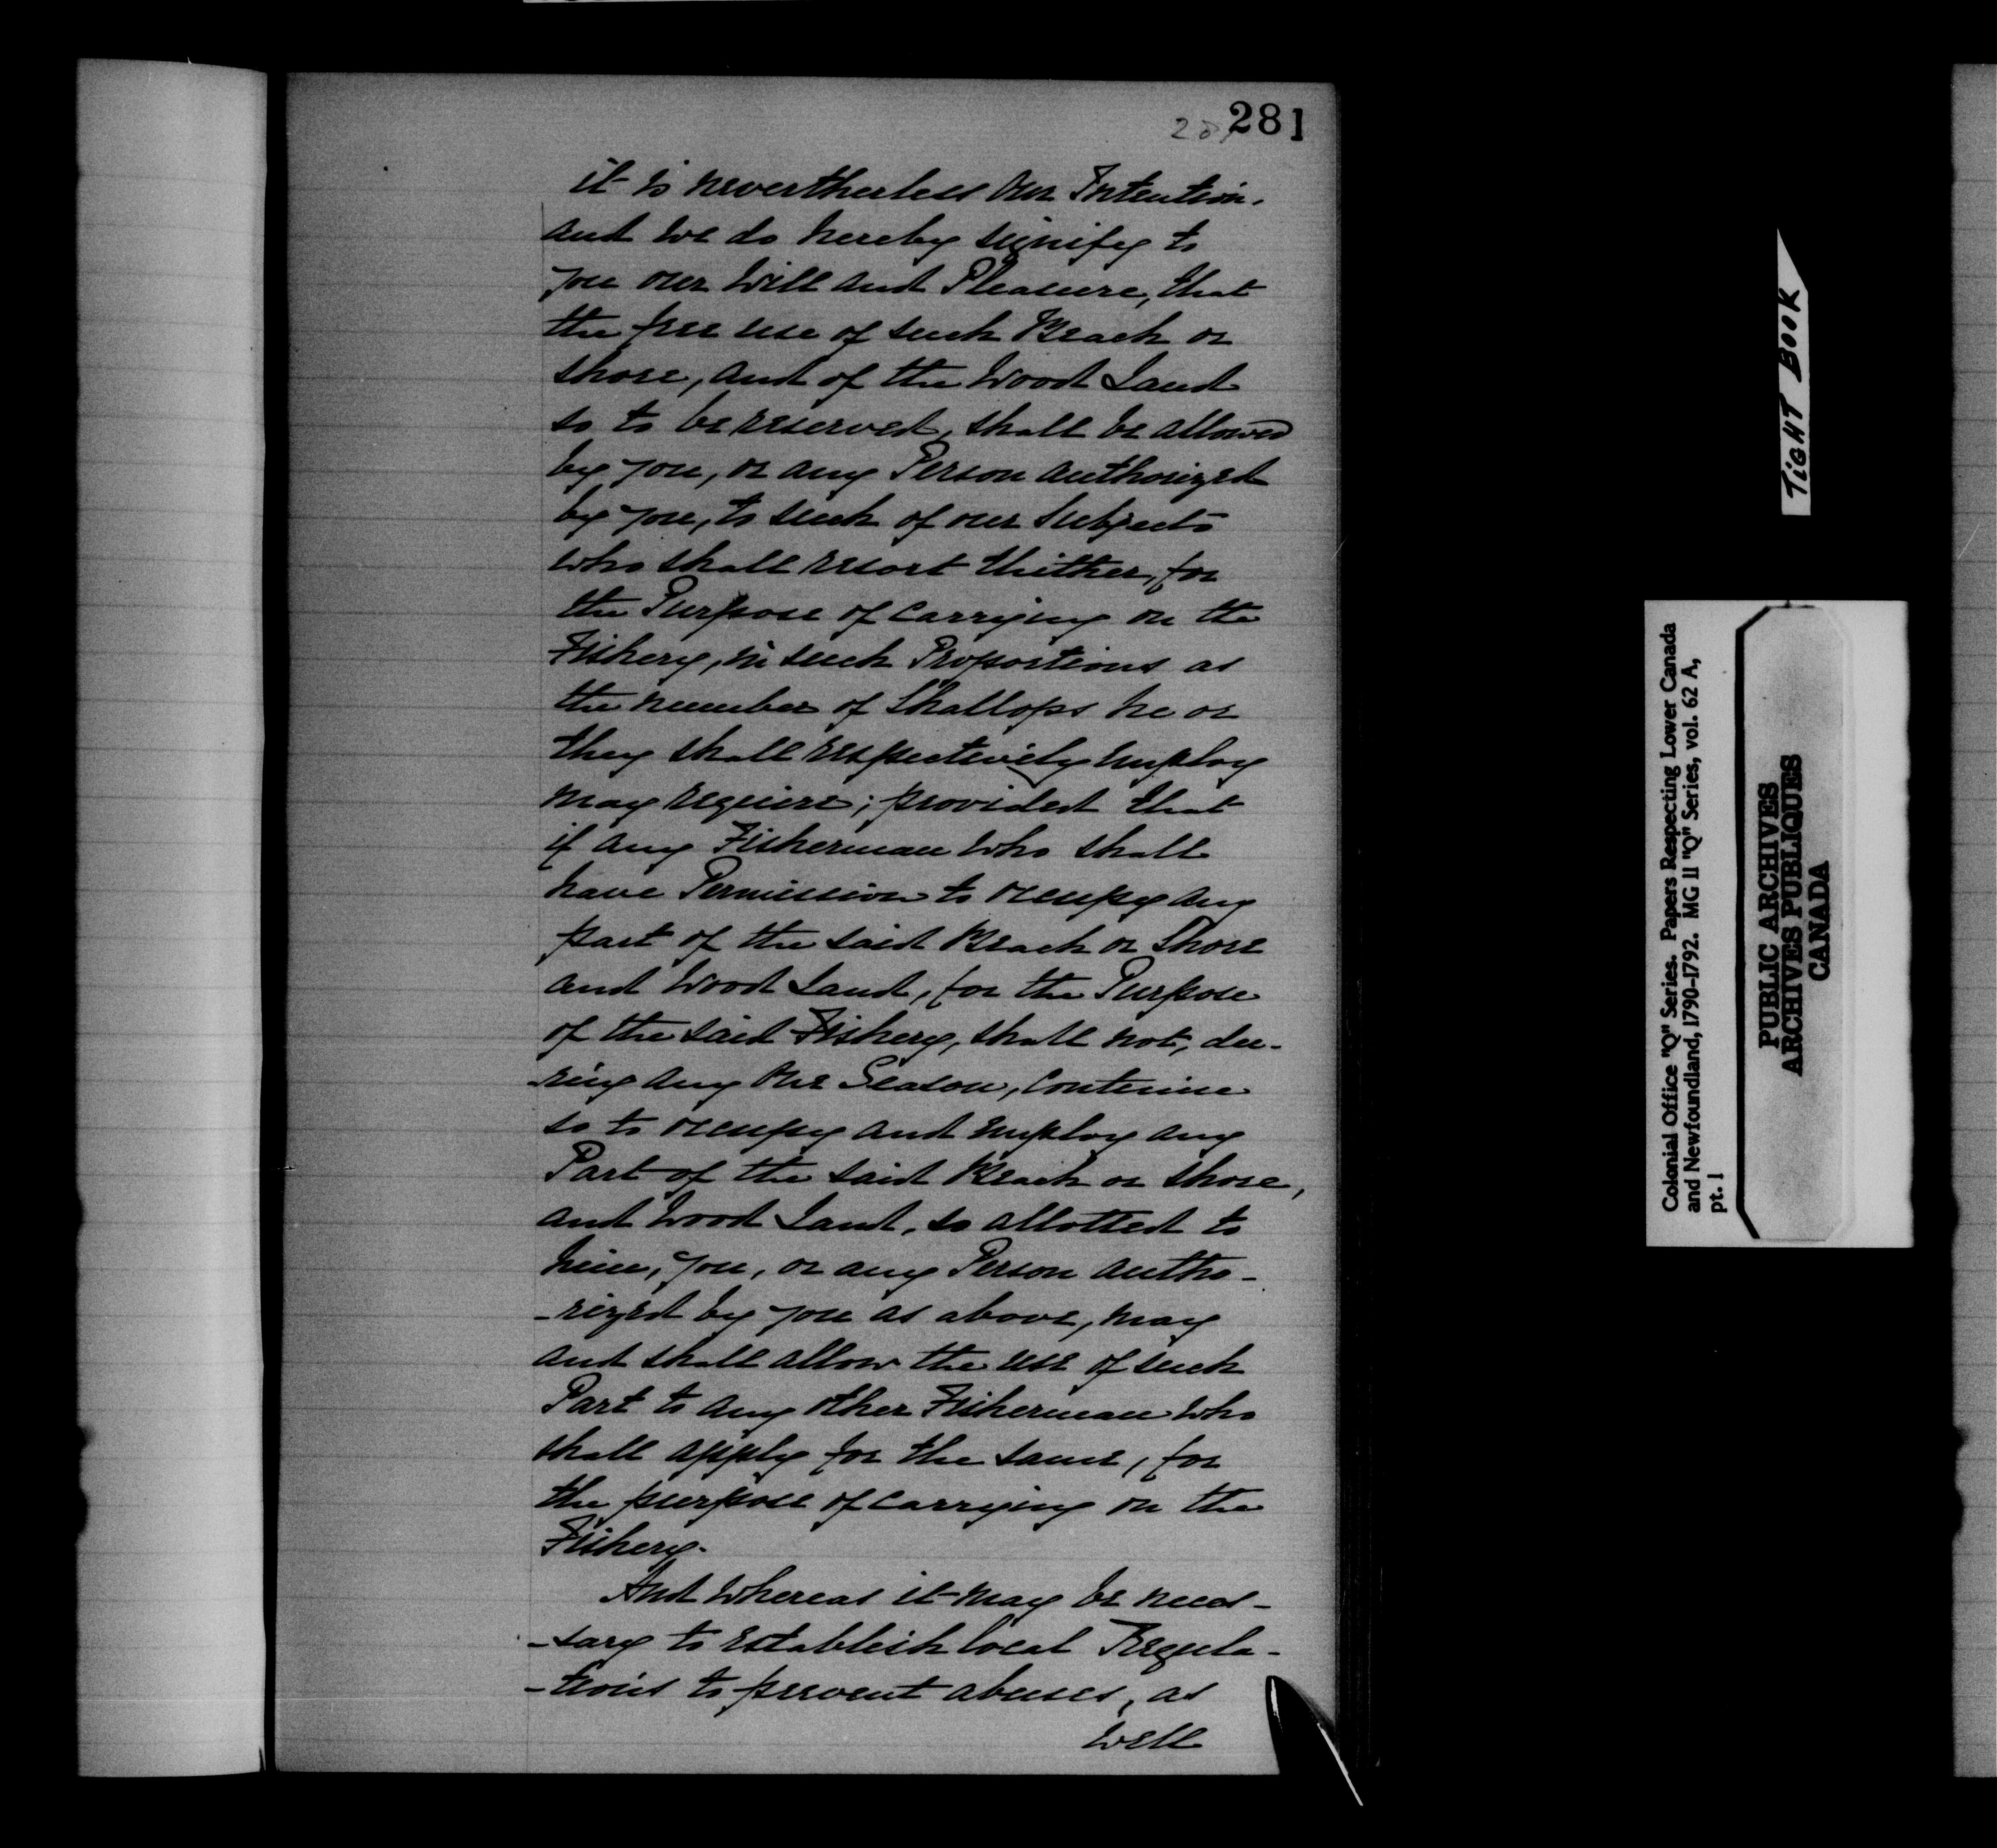 281
it is nevertheless our Intention,
and we do hereby signify to
you our Will and Pleasure, that
the free use of such Beach or
shore, and of the Wood Land
so to be reserved, shall be allowed
by you, or any Person authorized
by you, to such of our Subjects
who shall resort thither, for
the Purpose of carrying on the
Fishery, in such Proportions as
the number of Shallops he or
they shall respectively employ
may require; provided that
if any Fisherman who shall
have Permission to occupy any
part of the said Beach or Shore
and Wood Land, for the Purpose
of the said Fishery, shall not, du-
-ring any one Season, continue
so to occupy and employ any
Part of the said Beach or shore,
and Wood Land, so allotted to
him, you, or any Person autho-
-rized by you as above, may
and shall allow the use of such
Part to any other Fisherman who
shall apply for the same, for
the purpose of carrying on the
Fishery.
And whereas it may be neces-
-sary to establish local Regula-
-tions to prevent abuses, as
well
TIGHT BOOK
Colonial Office "Q" Series. Papers Respecting Lower Canada
and Newfoundland, 1790-1792. MG 11 "Q" Series, vol. 62 A,
pt. 1
PUBLIC ARCHIVES
ARCHIVES PUBLIQUES
CANADA